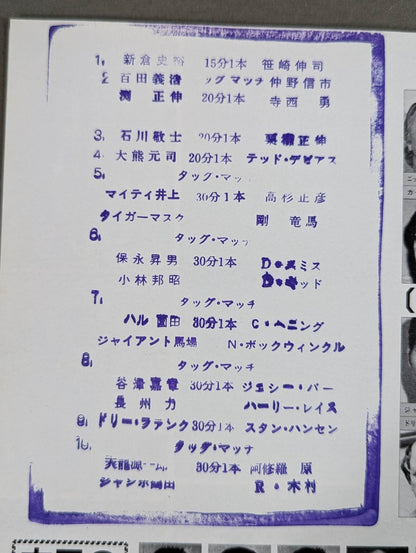 1. 新倉史裕 15分1本 笹崎伸司
2 百田義浩 タッグマッチ 仲野信市
渕 正伸 20分1本 寺西 勇
3. 石川敬士 20分1本 栗栖正伸
4. 大熊元司 20分1本 テッド・デビアス
5. タッグ・マッチ
マイティ井上 30分1本 高杉正彦
タイガーマスク 剛 竜馬
6. タッグ・マッチ
保永昇男 30分1本 D・スミス
小林邦昭 D・キッド
7. タッグ・マッチ
ハル薗田 30分1本 C・ヘニング
ジャイアント馬場 N・ボックウィンクル
8. タッグ・マッチ
谷津嘉章 30分1本 ジェシー・バー
長州 力 ハーリー・レイス
9. ドリー・ファンク 30分1本 スタン・ハンセン
10. タッグ・マッチ
天龍源一郎 30分1本 阿修羅 原
ジャンボ鶴田 R・木村